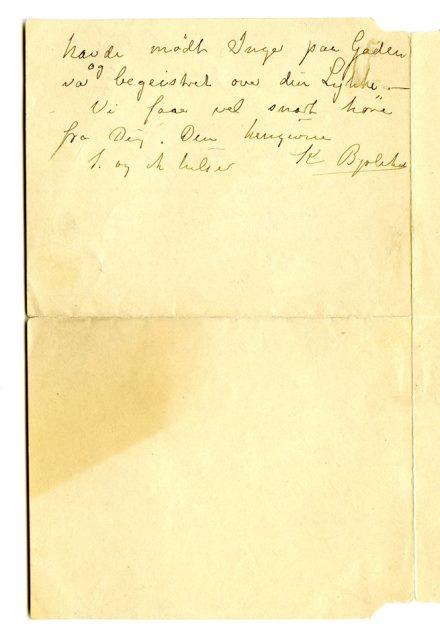 havde mødt Inge paa Gaden
og
va begeistret over din Lykke. —
- Vi faar vel snart høre
fra Dig. Din hengivne
S. og M hilser K